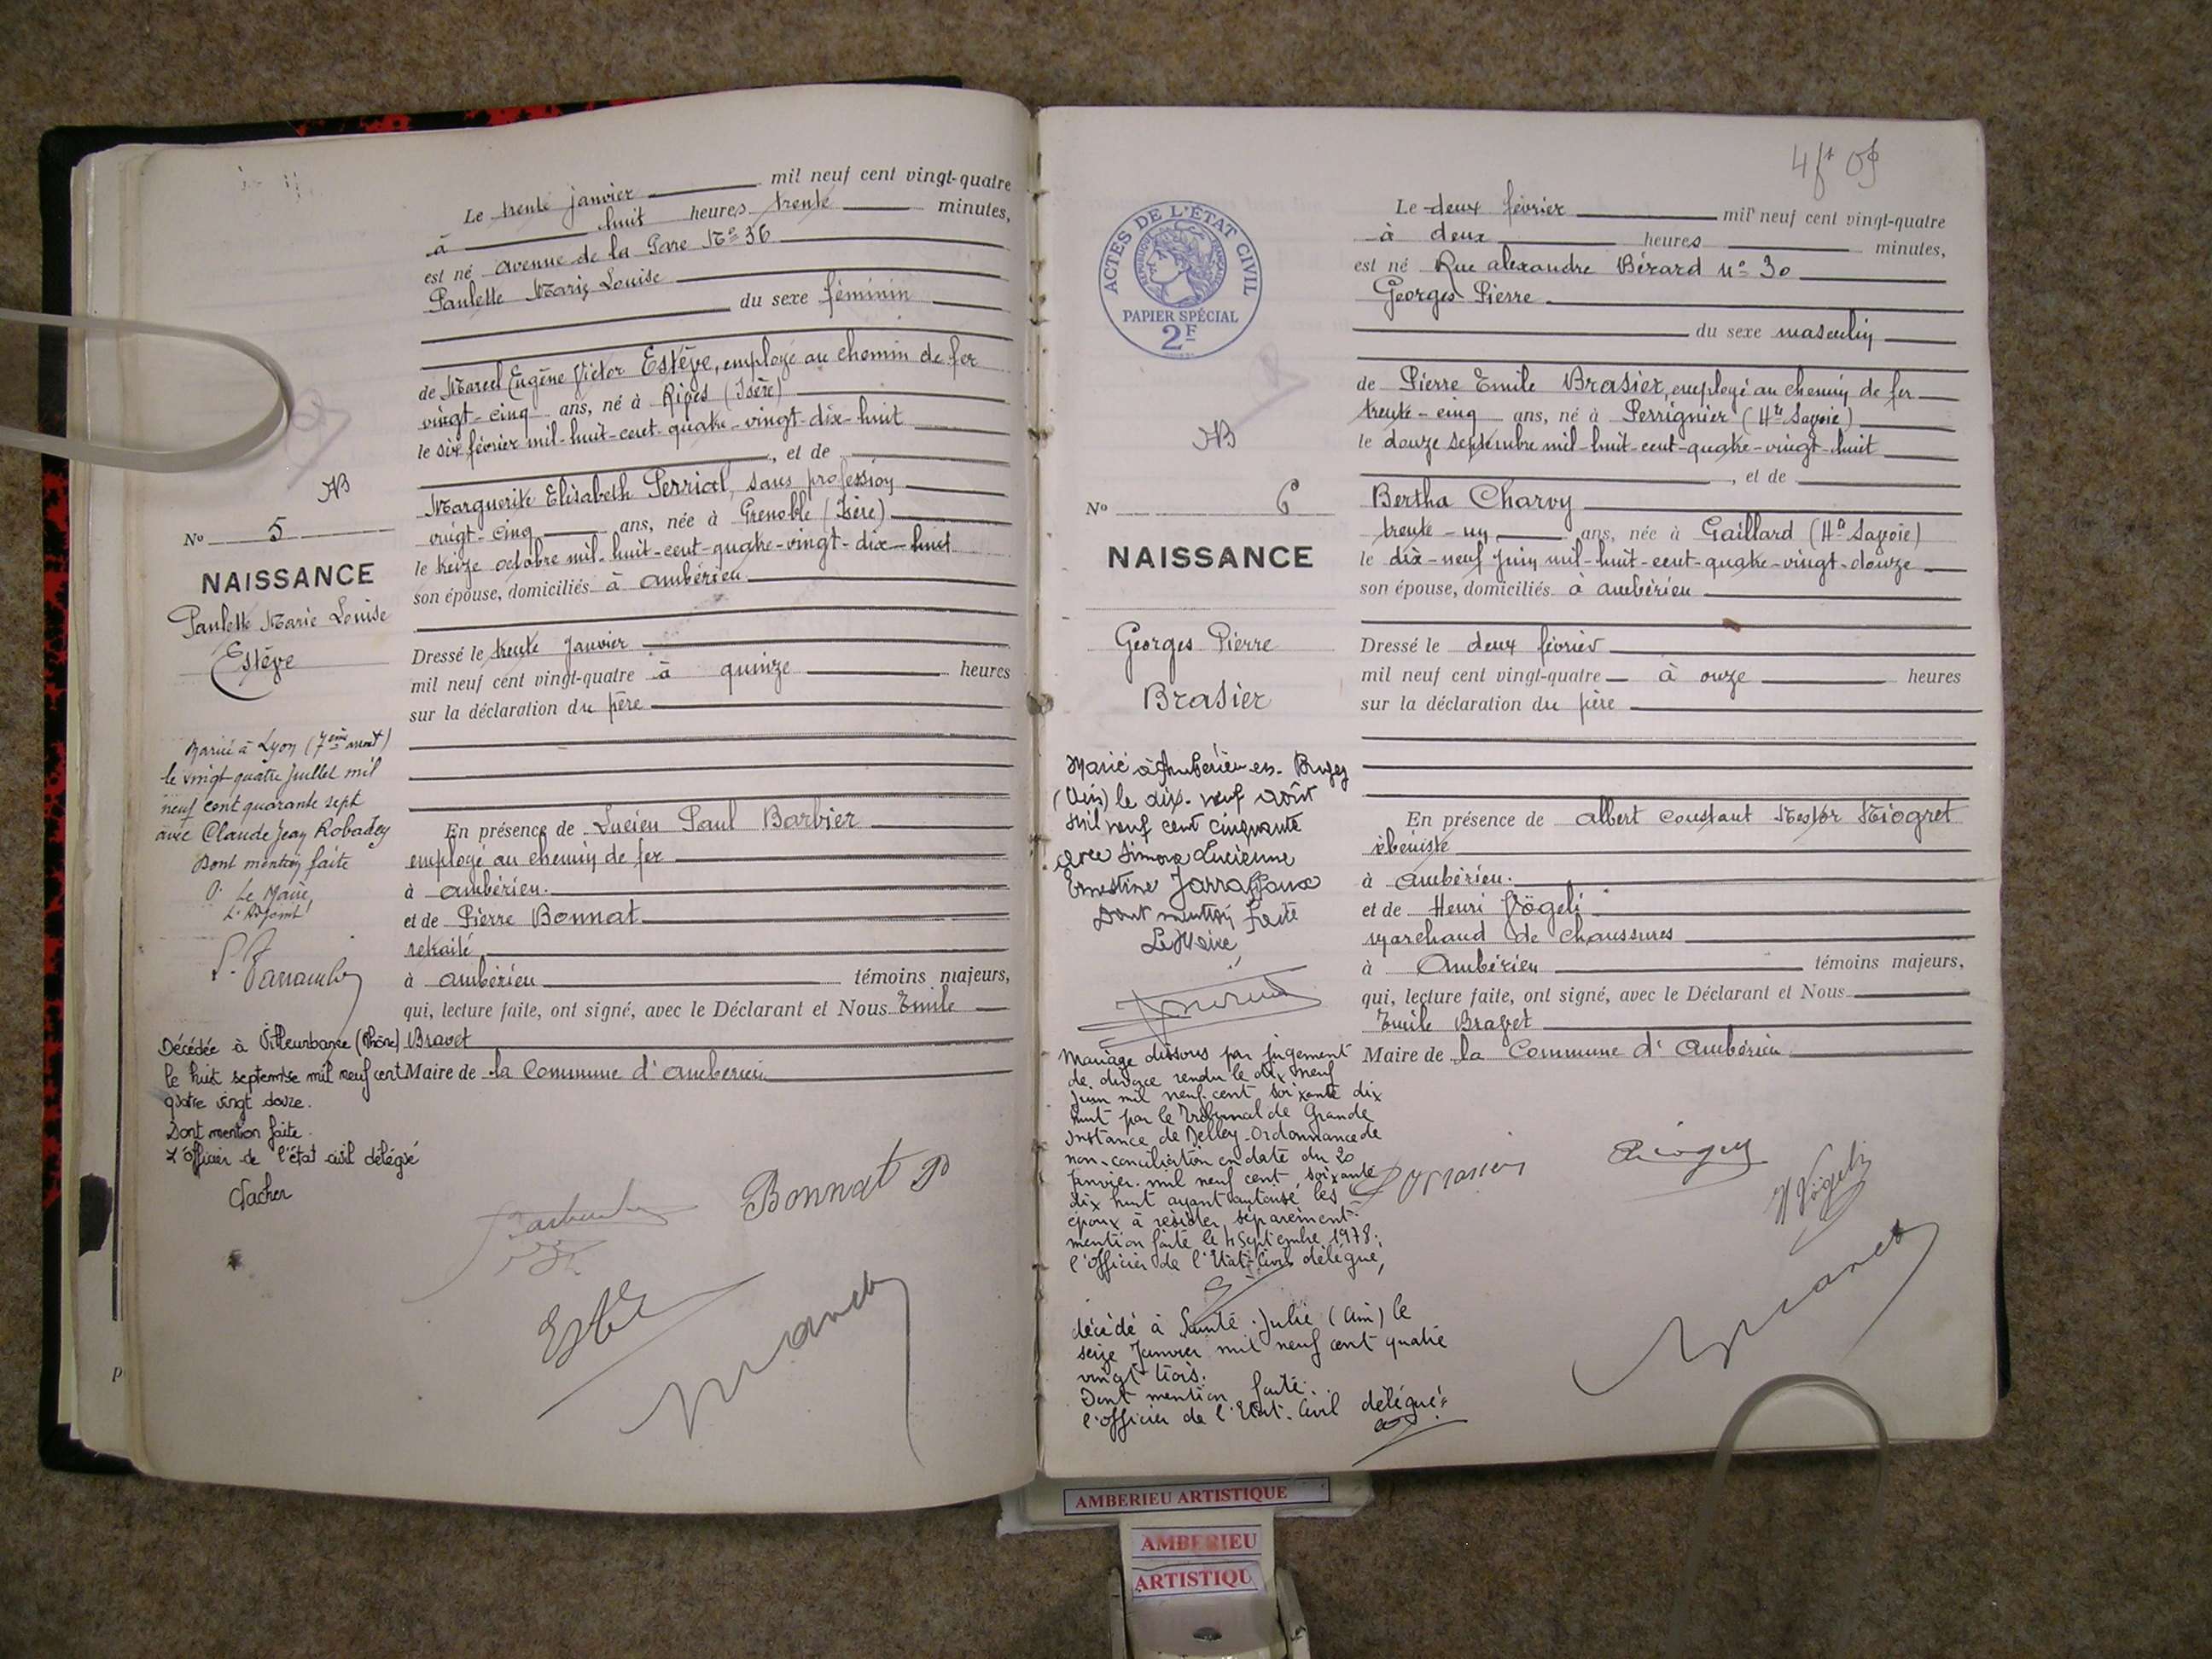 Le trente janvier mil neuf cent vingt-quatre
à huit heures trente minutes,
est né avenue de la Gare No 36
Paulette Marie Louise
du sexe féminin
de Marcel Eugène Victor Estève, employé au chemin de fer
vingt-cinq ans, né à Rives (Isère)
le six février mil-huit-cent-quatre-vingt-dix-huit
, et de
Marguerite Elisabeth Perriol, sans profession
vingt-cinq ans, née à Grenoble (Isère)
le treize octobre mil-huit-cent-quatre-vingt-dix-huit
son épouse, domiciliés à Ambérieu
Dressé le trente Janvier
mil neuf cent vingt-quatre à quinze heures
sur la déclaration du père
En présence de Lucien Paul Barbier
employé au chemin de fer
à Ambérieu.
et de Pierre Bonnat
retraité
à Ambérieu témoins majeurs,
qui, lecture faite, ont signé, avec le Déclarant et Nous Emile
Bravet
Maire de la Commune d'Ambérieu
No 5
NAISSANCE
Paulette Marie Louise
Estève
Mariée à Lyon (7ème arront)
le vingt quatre Juillet mil
neuf cent quarante sept
avec Claude Jean Robadey
Dont mention faite
Pr Le Maire,
L'Adjoint
Décédée à Villeurbanne (Rhône)
le huit septembre mil neuf cent
quatre vingt douze.
Dont mention faite.
L'Officier de l'état civil délégué
Bonnat P
4 ft 09
ACTES DE L'ÉTAT CIVIL
RÉPUBLIQUE FRANÇAISE
PAPIER SPÉCIAL
2F
Le deux février mil neuf cent vingt-quatre
à deux heures minutes,
est né Rue Alexandre Bérard No 30
Georges Pierre
du sexe masculin
de Pierre Emile Brasier, employé au chemin de fer
trente-cinq ans, né à Perrignier (Hte Savoie)
le douze septembre mil-huit-cent-quatre-vingt-huit
, et de
Bertha Charvy
trente-un ans, née à Gaillard (Hte Savoie)
le dix-neuf Juin mil-huit-cent-quatre-vingt-douze
son épouse, domiciliés à Ambérieu
Dressé le deux février
mil neuf cent vingt-quatre à onze heures
sur la déclaration du père
En présence de Albert Constant Nestor Niogret
ébéniste
à Ambérieu.
et de Henri Vögeli
Marchand de chaussures
à Ambérieu témoins majeurs,
qui, lecture faite, ont signé, avec le Déclarant et Nous
Emile Bravet
Maire de la Commune d'Ambérieu
No 6
NAISSANCE
Georges Pierre
Brasier
Marié à Ambérieu-en-Bugey
(Ain) le dix-neuf août
mil neuf cent cinquante
avec Simone Lucienne
Ernestine Jarraffoux
Dont mention faite
Le Maire,
Mariage dissous par jugement
de divorce rendu le dix neuf
Juin mil neuf cent soixante dix
huit par le Tribunal de Grande
Instance de Belley. Ordonnance de
non-conciliation en date du 20
Janvier mil neuf cent soixante
dix huit ayant autorisé les
époux à résider séparément.
mention faite le 4 Septembre 1978.
l'Officier de l'Etat-Civil délégué,
décédé à Sainte-Julie (Ain) le
seize Janvier mil neuf cent quatre
vingt trois.
Dont mention faite.
l'officier de l'Etat-Civil délégué.
H Vögeli
AMBERIEU ARTISTIQUE
AMBERIEU
ARTISTIQU